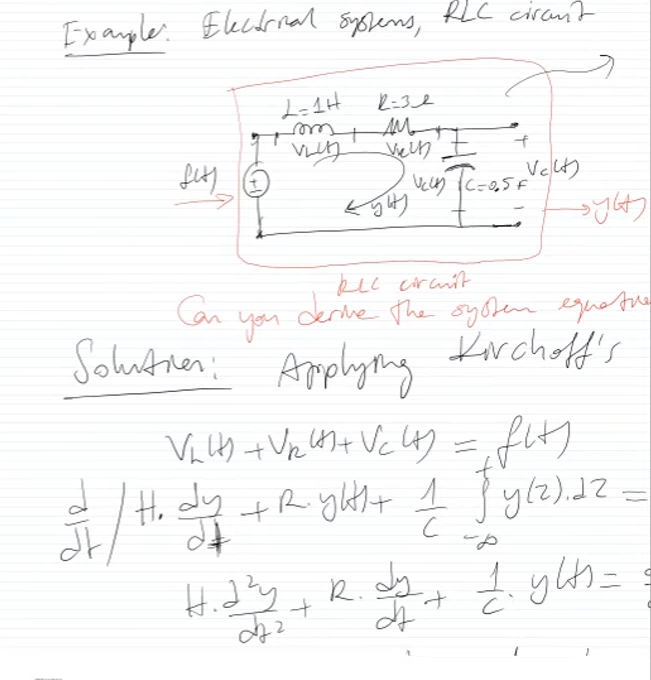 Example: Electrical systems, RLC circuit
L=1H R=3Ω
VL(t) VR(t) +
f(t) ± Vc(t) C=0,5F Vc(t)
y(t) - y(t)
RLC circuit
Can you derive the system equation
Solution: Applying Kirchoff's
VL(t) + VR(t) + Vc(t) = f(t)
d/dt / H. dy/dt + R. y(t) + 1/C ∫_{-∞}^{t} y(z).dz =
H. d²y/dt² + R. dy/dt + 1/C. y(t) =